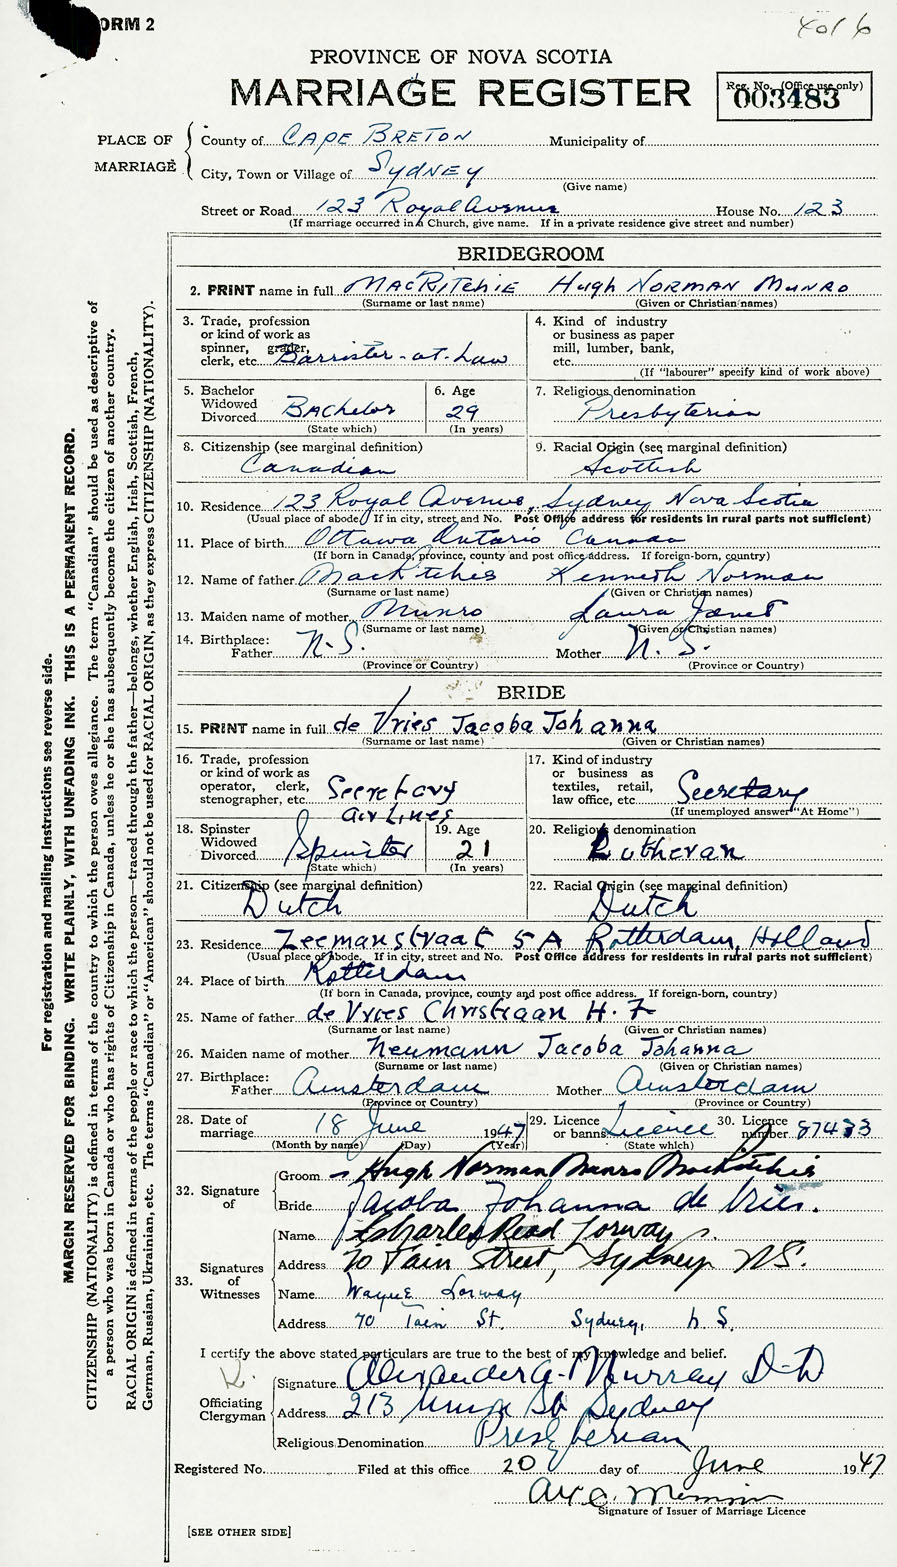 FORM 2
4 of 6
PROVINCE OF NOVA SCOTIA
MARRIAGE REGISTER
Reg. No. (Office use only)
003483
PLACE OF MARRIAGE
County of CAPE BRETON Municipality of
City, Town or Village of SYDNEY
(Give name)
Street or Road 123 Royal Avenue House No. 123
(If marriage occurred in a Church, give name. If in a private residence give street and number)
BRIDEGROOM
2. PRINT name in full MacRitchie Hugh Norman Munro
(Surname or last name) (Given or Christian names)
3. Trade, profession or kind of work as spinner, grader, clerk, etc. Barrister-at-Law
4. Kind of industry or business as paper mill, lumber, bank, etc.
(If "labourer" specify kind of work above)
5. Bachelor Widowed Divorced Bachelor
(State which)
6. Age 29
(In years)
7. Religious denomination
Presbyterian
8. Citizenship (see marginal definition)
Canadian
9. Racial Origin (see marginal definition)
Scottish
10. Residence 123 Royal Avenue, Sydney Nova Scotia
(Usual place of abode. If in city, street and No. Post Office address for residents in rural parts not sufficient)
11. Place of birth Ottawa Ontario Canada
(If born in Canada, province, county and post office address. If foreign-born, country)
12. Name of father MacRitchie Kenneth Norman
(Surname or last name) (Given or Christian names)
13. Maiden name of mother Munro Laura Janet
(Surname or last name) (Given or Christian names)
14. Birthplace:
Father N.S. Mother N.S.
(Province or Country) (Province or Country)
BRIDE
15. PRINT name in full de Vries Jacoba Johanna
(Surname or last name) (Given or Christian names)
16. Trade, profession or kind of work as operator, clerk, stenographer, etc. Secretary
Air Lines
17. Kind of industry or business as textiles, retail, law office, etc. Secretary
(If unemployed answer "At Home")
18. Spinster Widowed Divorced Spinster
(State which)
19. Age 21
(In years)
20. Religious denomination
Lutheran
21. Citizenship (see marginal definition)
Dutch
22. Racial Origin (see marginal definition)
Dutch
23. Residence Zeemanstraat 5A Rotterdam, Holland
(Usual place of abode. If in city, street and No. Post Office address for residents in rural parts not sufficient)
24. Place of birth Rotterdam
(If born in Canada, province, county and post office address. If foreign-born, country)
25. Name of father de Vries Christiaan H. F
(Surname or last name) (Given or Christian names)
26. Maiden name of mother Neumann Jacoba Johanna
(Surname or last name) (Given or Christian names)
27. Birthplace:
Father Amsterdam Mother Amsterdam
(Province or Country) (Province or Country)
28. Date of marriage 18 June 1947
(Month by name) (Day) (Year)
29. Licence or banns Licence
(State which)
30. Licence number 87433
32. Signature of
Groom Hugh Norman Munro MacRitchie
Bride Jacoba Johanna de Vries.
33. Signatures of Witnesses
Name Charles Read Lorway
Address 70 Tain Street, Sydney NS.
Name Wayne Lorway
Address 70 Tain St. Sydney, N.S.
I certify the above stated particulars are true to the best of my knowledge and belief.
Officiating Clergyman
Signature Alexander A. Murray D-D
Address 213 Union St Sydney
Religious Denomination Presbyterian
Registered No. Filed at this office 20 day of June 1947
Signature of Issuer of Marriage Licence
[SEE OTHER SIDE]
For registration and mailing instructions see reverse side.
MARGIN RESERVED FOR BINDING. WRITE PLAINLY, WITH UNFADING INK. THIS IS A PERMANENT RECORD.
CITIZENSHIP (NATIONALITY) is defined in terms of the country to which the person owes allegiance. The term "Canadian" should be used as descriptive of
a person who was born in Canada or who has rights of Citizenship in Canada, unless he or she has subsequently become the citizen of another country.
RACIAL ORIGIN is defined in terms of the people or race to which the person—traced through the father—belongs, whether English, Irish, Scottish, French,
German, Russian, Ukrainian, etc. The terms "Canadian" or "American" should not be used for RACIAL ORIGIN, as they express CITIZENSHIP (NATIONALITY).